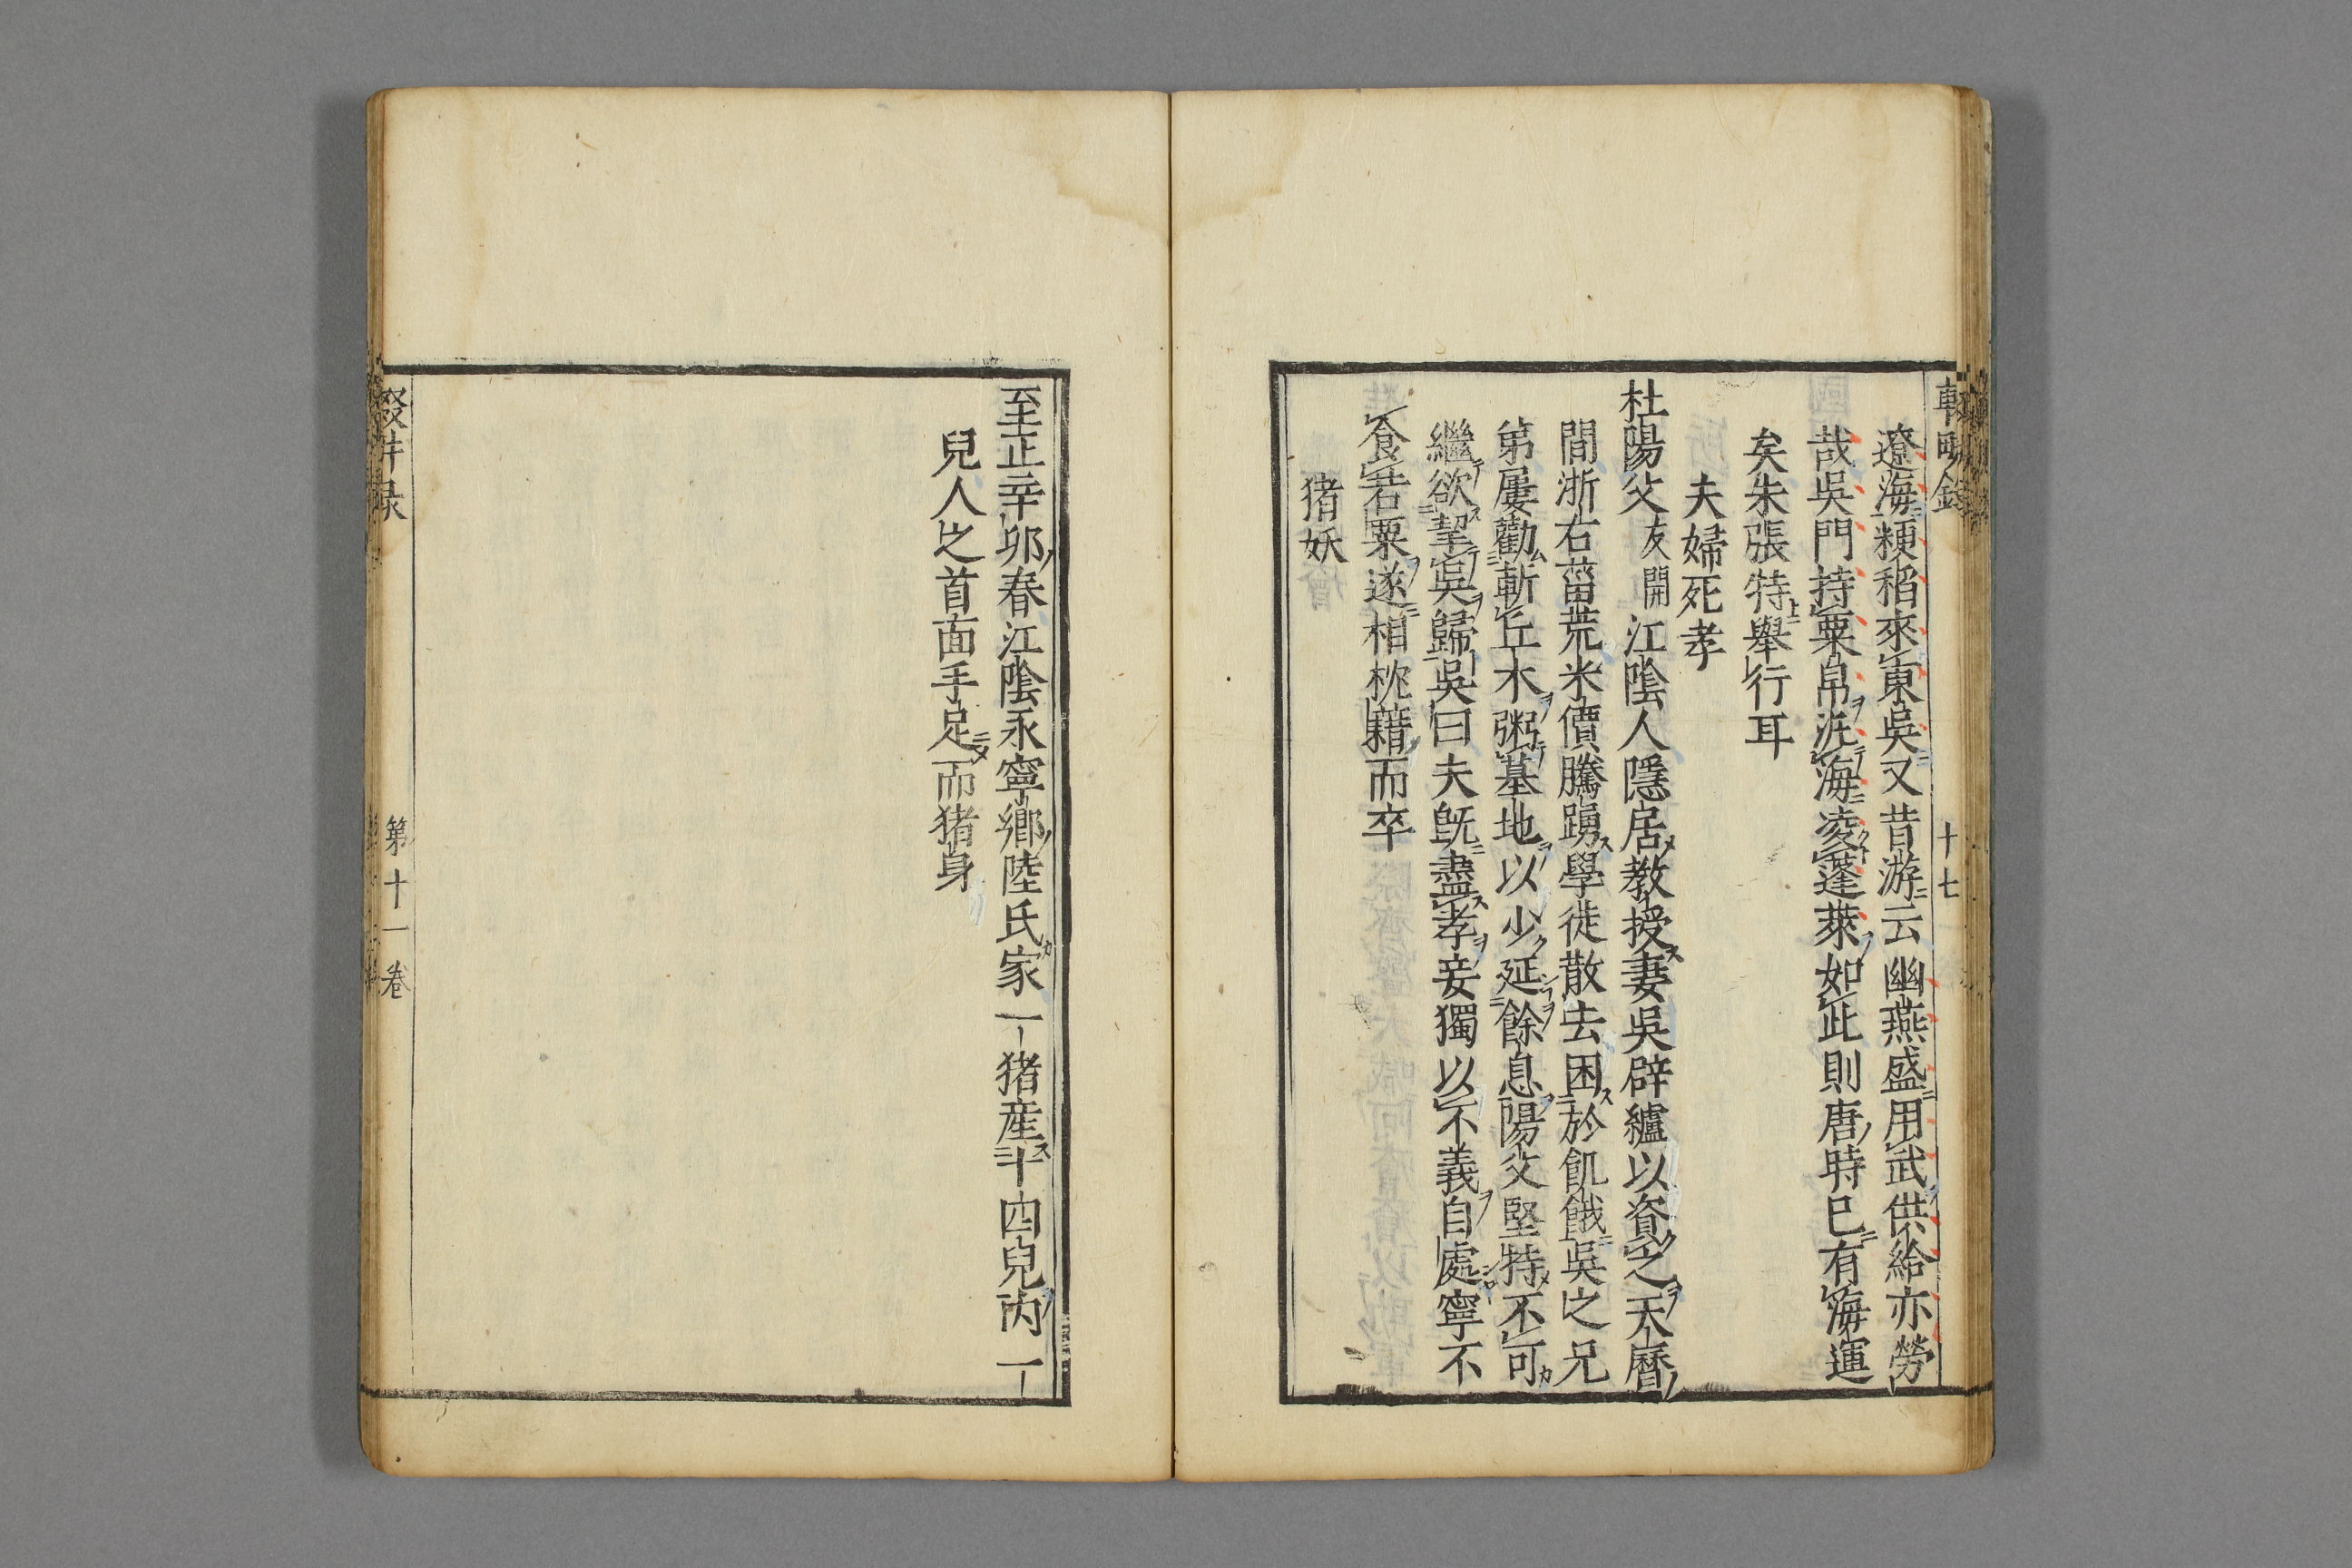 遼海粳稻來東吳又昔游云幽燕盛用武供給亦勞
哉吳門持粟帛泛海凌蓬萊如此則唐時巳有海運
矣朱張特舉行耳
夫婦死孝
杜陽父友開江陰人隱居教授妻吳辟纑以資之天曆
間浙右菑荒米價騰踴學徒散去困於飢餓吳之兄
第屢勸斬丘木粥墓地以少延餘息陽父堅持不可
繼欲挈吳歸吳曰夫既盡孝妾獨以不義自處寧不
食若粟遂相枕藉而卒
猪妖
至正辛卯春江陰永寧鄉陸氏家一猪產十四兒內一
兒人之首面手足而猪身
十七
第十一卷